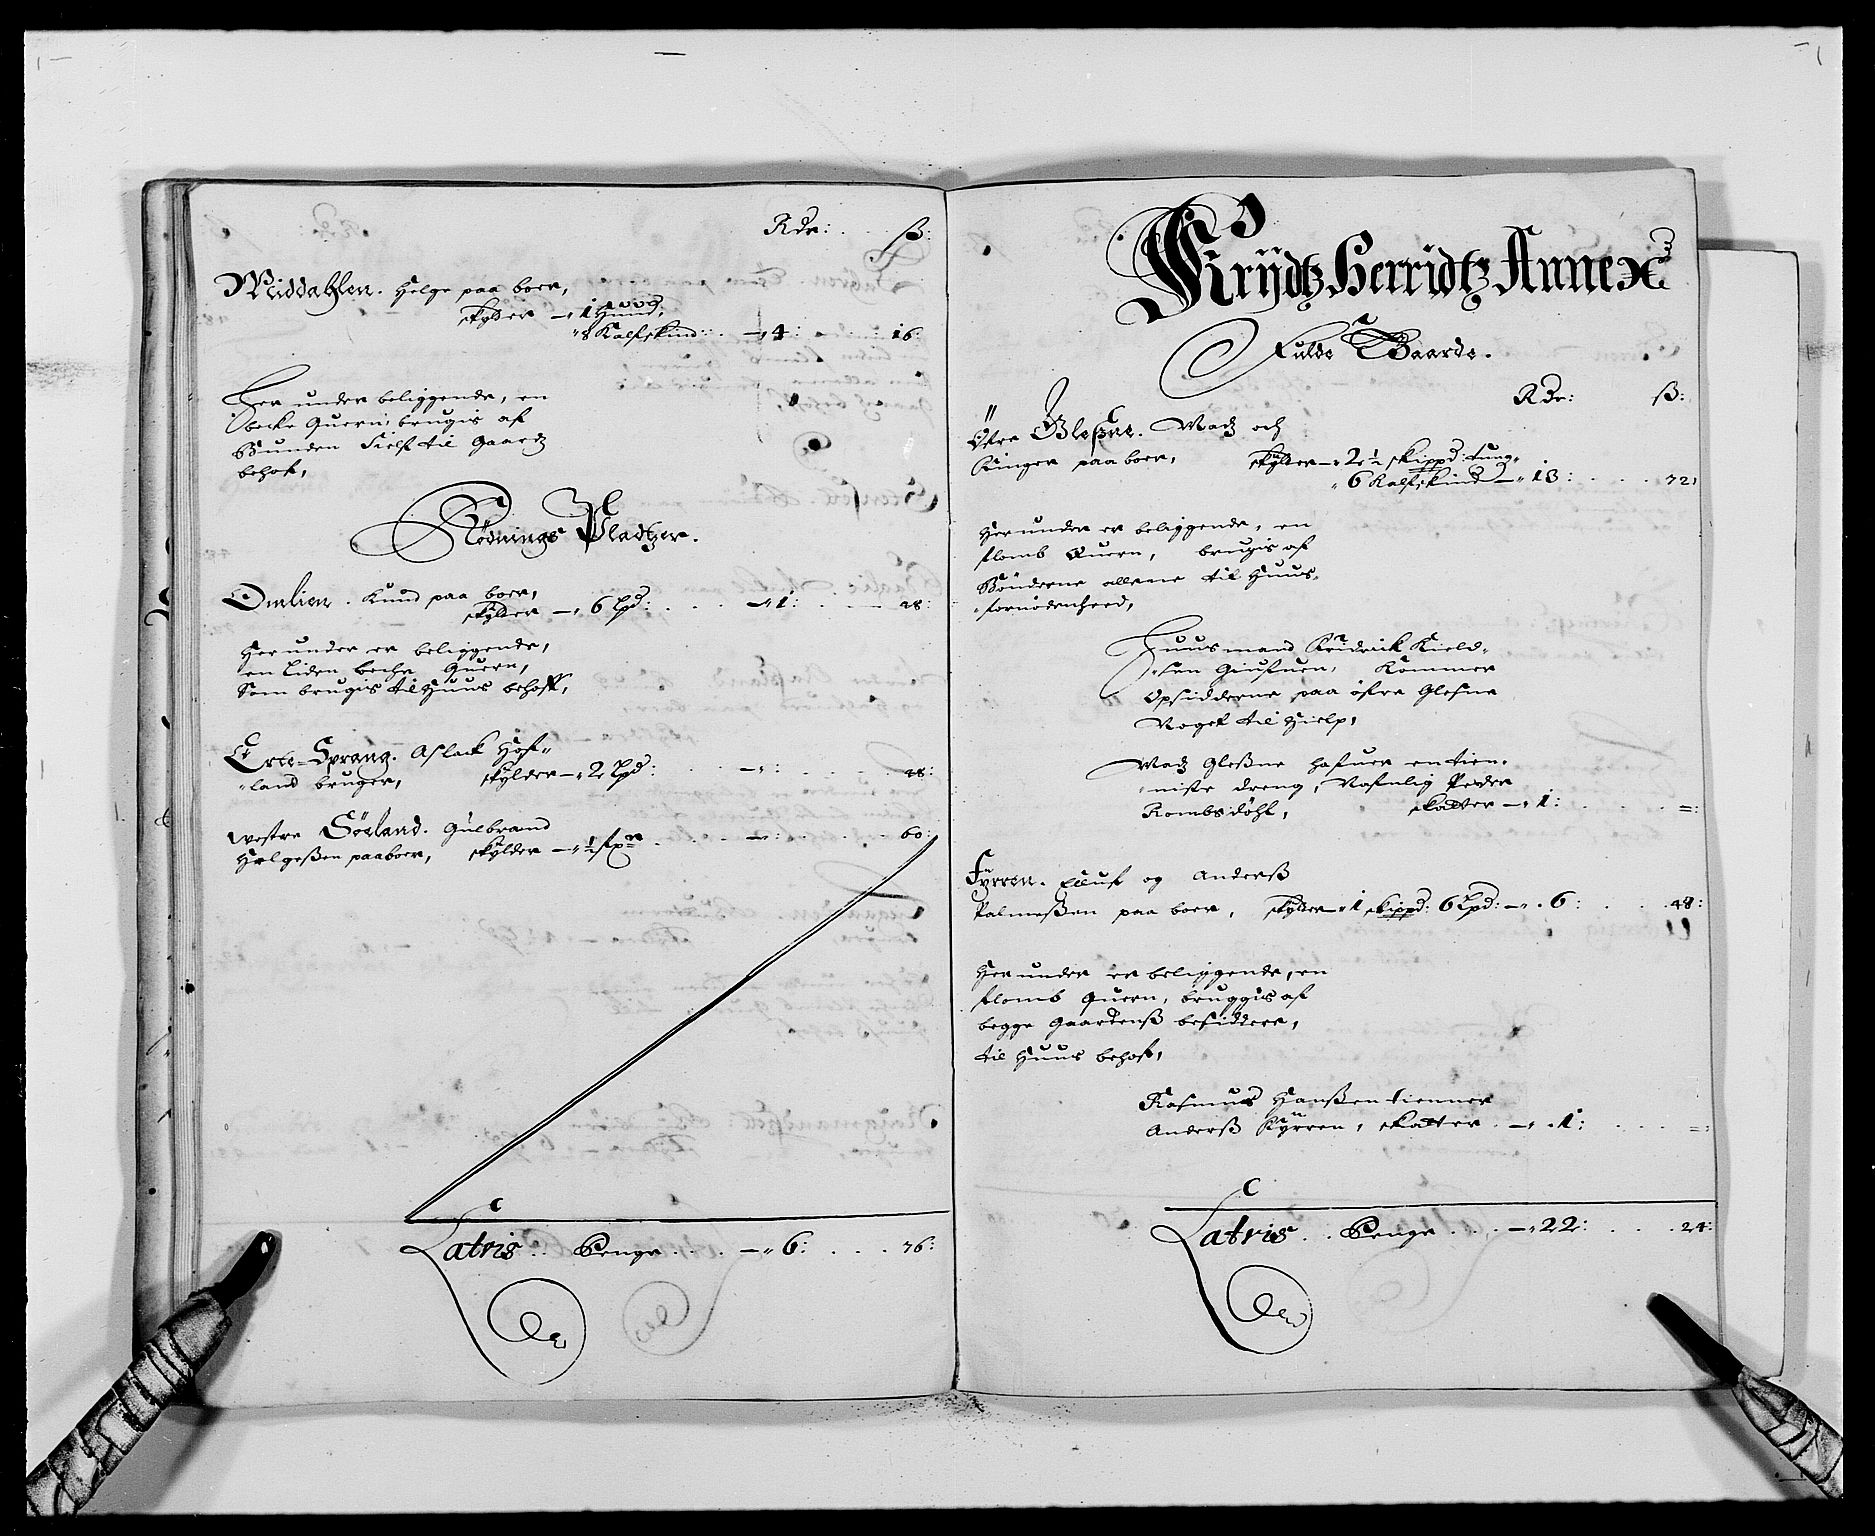 Rdr: ß:
Middahlen. Helge paa boer,
skylder — 1 Hund,
8 Kalfskind: — 4: 16:
Her under beliggende, en
becke Quern; brugis af
Bunden Self til Gaardz
behof,
Rödnings Pladtzer.
Omlien. Knud paa boer,
skylder — 6 Lpd: — 1: 28:
Her under er beliggende,
en liden beche Quern,
Som brugis til Huus behoff,
Erte-Sprang. Aslack Hof-
land bruger, skylder — 2 Lpd: — : 48:
westre Sörland. Gulbrand
Helgeßen paaboer, skylder — ½ fxr — : 60:
Latris . . Penge . . . . — 6: . . . 76:
Krÿdtz Herridtz Annex
Fulde Gaarde.
Rdr: ß:
Öfre Gleßne. Madz och
Ringer paa boer, skylder — 2½ skippd: tung,
6 Kalfskind — 13: 72:
Her under er beliggende, en
flomb Quern, brugis af
Bönderne allene til Huus-
fornödenheed,
Huusmand Fridrick Kield-
sen Giufuer, Kommer
Opsidderne paa öfre Glesne
Noget til Hielp,
Madz Gleßne hafuer en tien-
niste dreng, Nafnlig Peder
Rombsdöhl, skatter — 1: =:
Fÿrren. Elluf og Anderß
Palmeßen paa boer, skylder — 1 skippd: 6 Lpd: — 6: 48:
Her under er beliggende, en
flomb Quern, bruggis af
begge Gaardenß besiddere,
til Huus behof,
Rasmus Hanßen tienner
Anderß Fÿrren, skatter — 1: =:
Latris . . Penge . . . — 22: . . . 24: